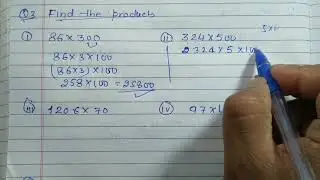 Q3 Find the products
i 86×300
86×3×100
(86×3)×100
258×100 = 25800
ii 324×500
324×5×10
iii 1206×70
iv 97×